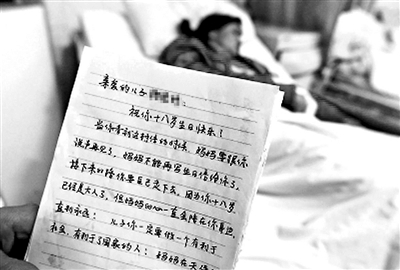 亲爱的儿子
祝你十八岁生日快乐！
当你看到这封信的时候，妈妈要跟你
说声再见了，妈妈不能再写生日信给你了，
接下来的路你要自己走下去，因为你十八岁，
已经是大人了，但妈妈的心一直会陪在你身边，
直到永远；儿子你一定要做一个有利于
社会，有利于国家的人；妈妈在天